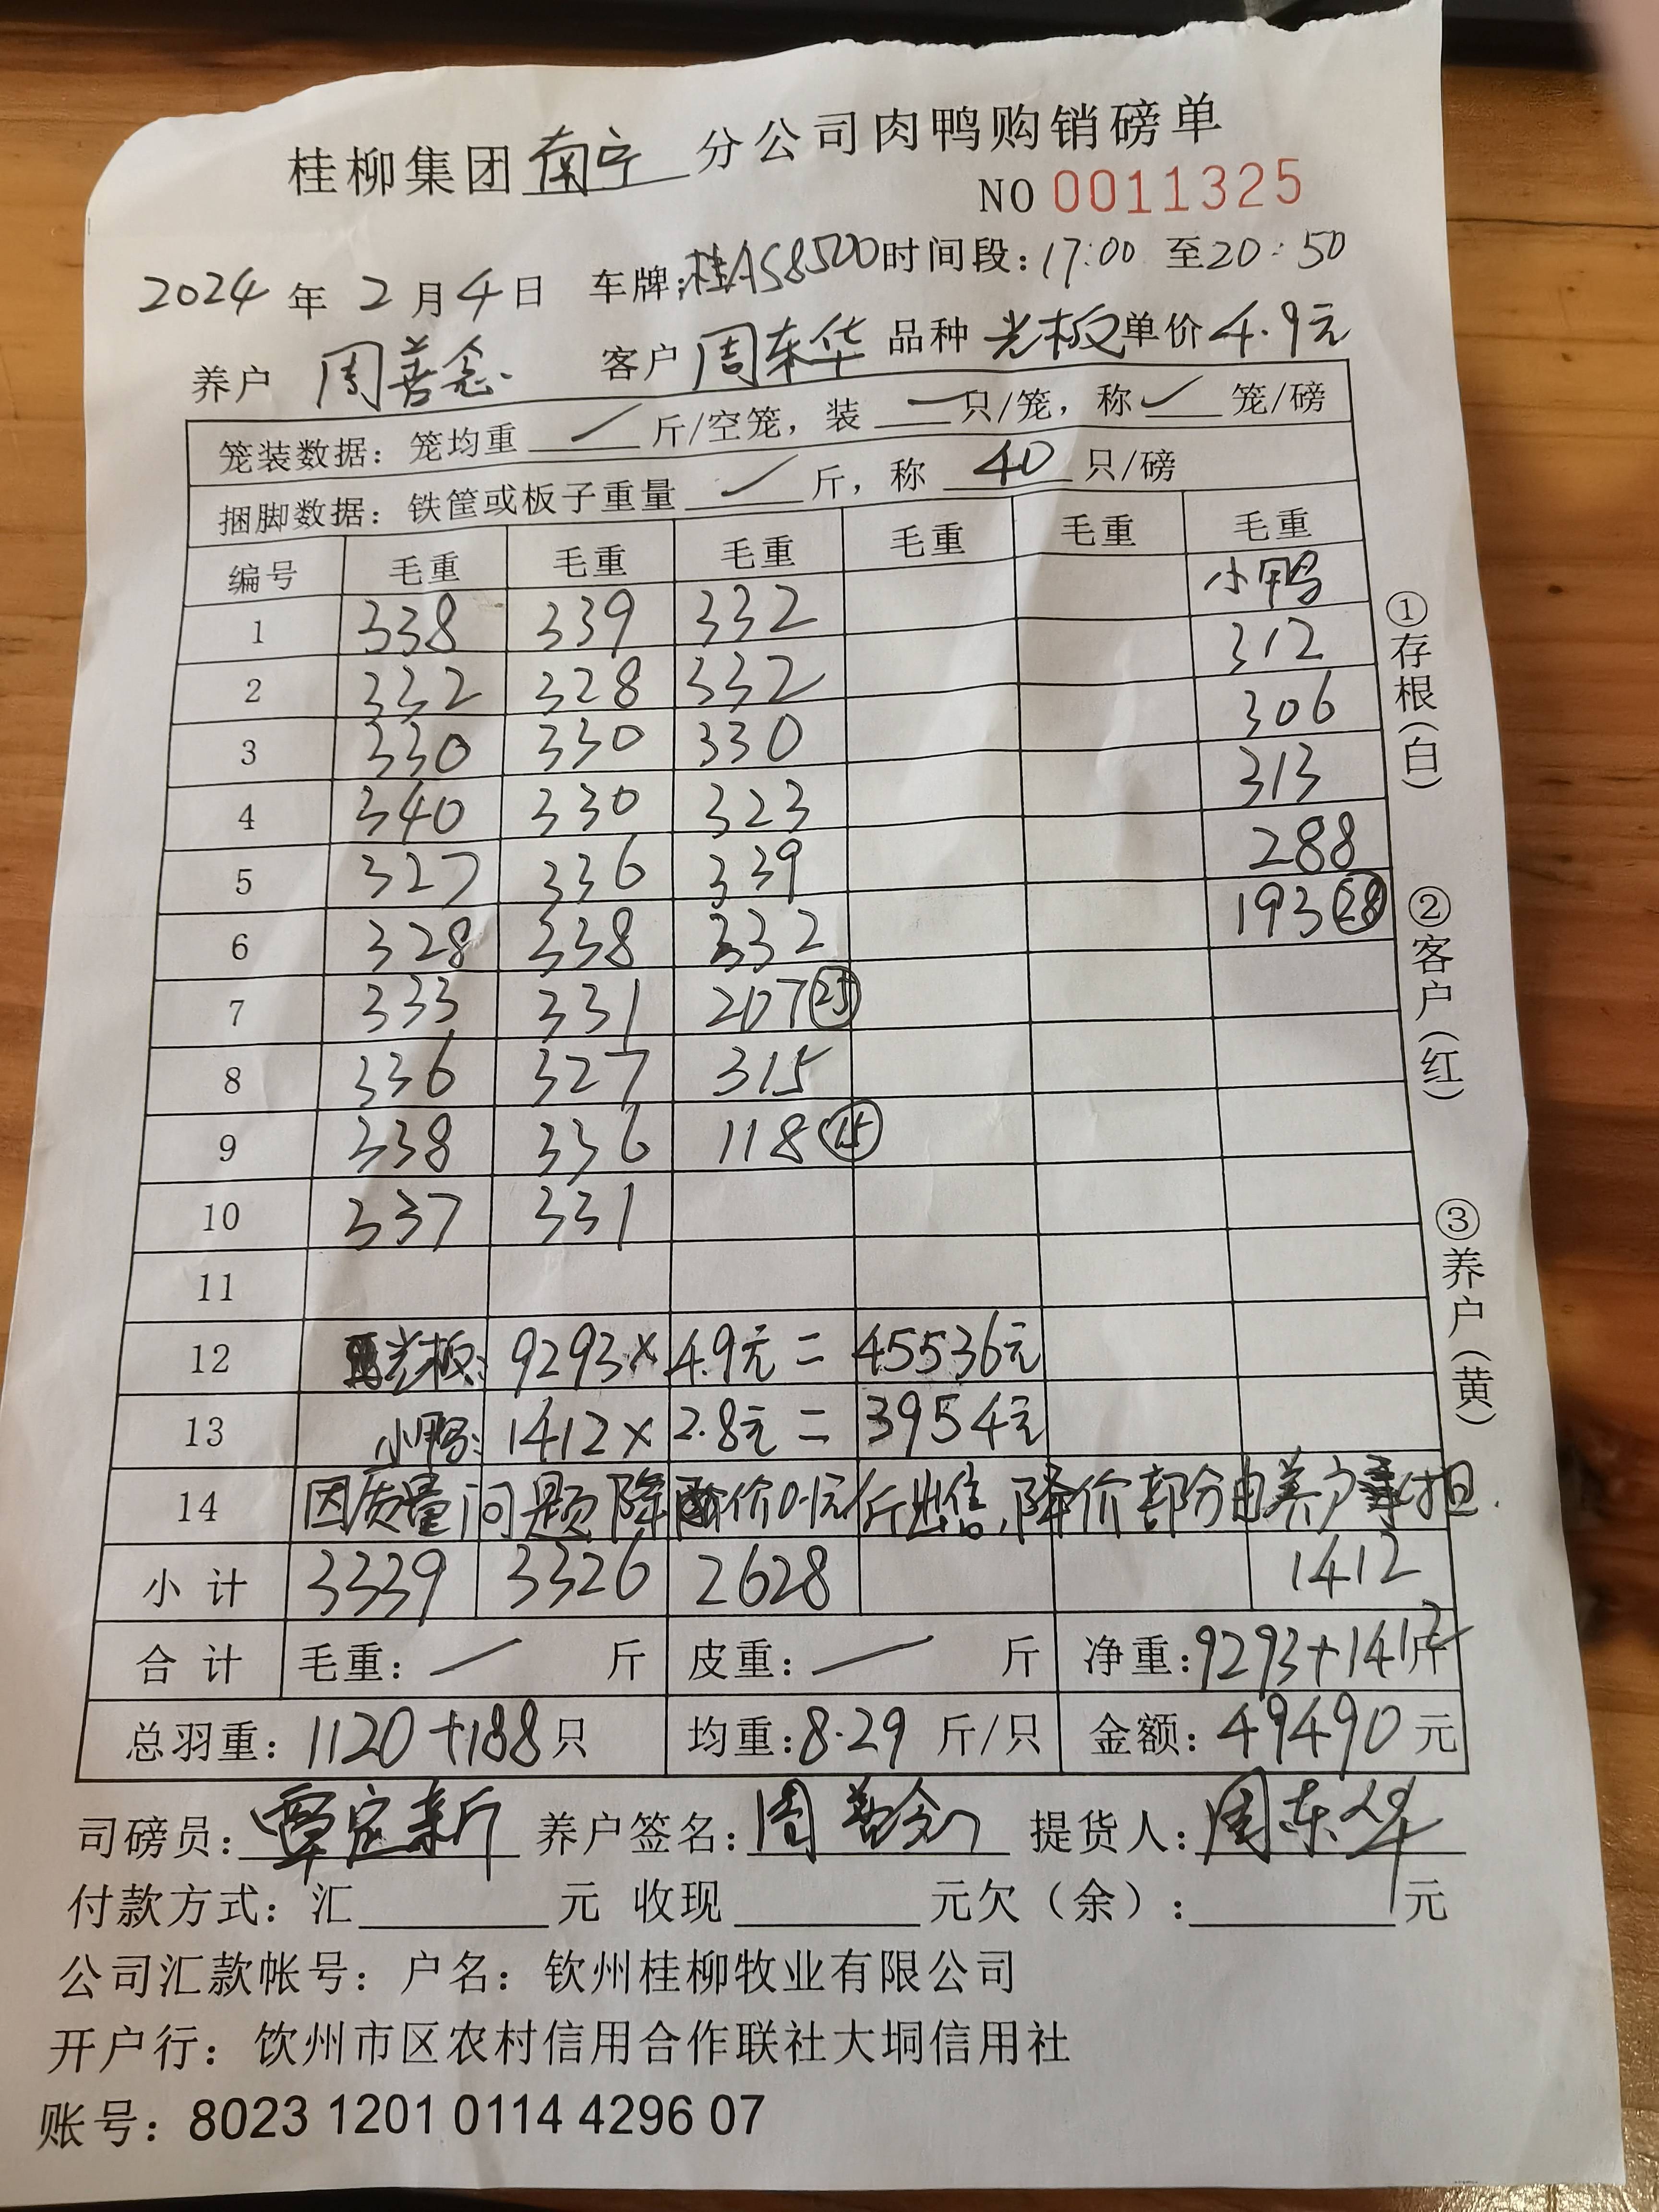 桂柳集团南宁分公司肉鸭购销磅单
NO 0011325
2024年2月4日 车牌:桂AS8500 时间段:17:00 至20:50
养户 周善念 客户 周东华 品种 光板 单价 4.9元
笼装数据:笼均重 / 斤/空笼,装 / 只/笼,称 / 笼/磅
捆脚数据:铁筐或板子重量 / 斤,称 40 只/磅
编号 毛重 毛重 毛重 毛重 毛重 毛重
小鸭
1 338 339 332 312
2 332 328 332 306
3 330 330 330 313
4 340 330 323 288
5 327 336 339 193 (28)
6 328 338 332
7 333 331 207 (25)
8 336 327 315
9 338 336 118 (15)
10 337 331
11
12 光板: 9293×4.9元=45536元
13 小鸭: 1412×2.8元=3954元
14 因质量问题降价0.1元/斤出售,降价部分由养户承担.
小计 3339 3326 2628 1412
合计 毛重: / 斤 皮重: / 斤 净重:9293+1412斤
总羽重:1120+188只 均重:8.29 斤/只 金额:49490元
司磅员:覃定新 养户签名:周善念 提货人:周东华
付款方式:汇 元 收现 元欠(余): 元
公司汇款帐号:户名:钦州桂柳牧业有限公司
开户行:饮州市区农村信用合作联社大垌信用社
账号:8023 1201 0114 4296 07
①存根(白)
②客户(红)
③养户(黄)